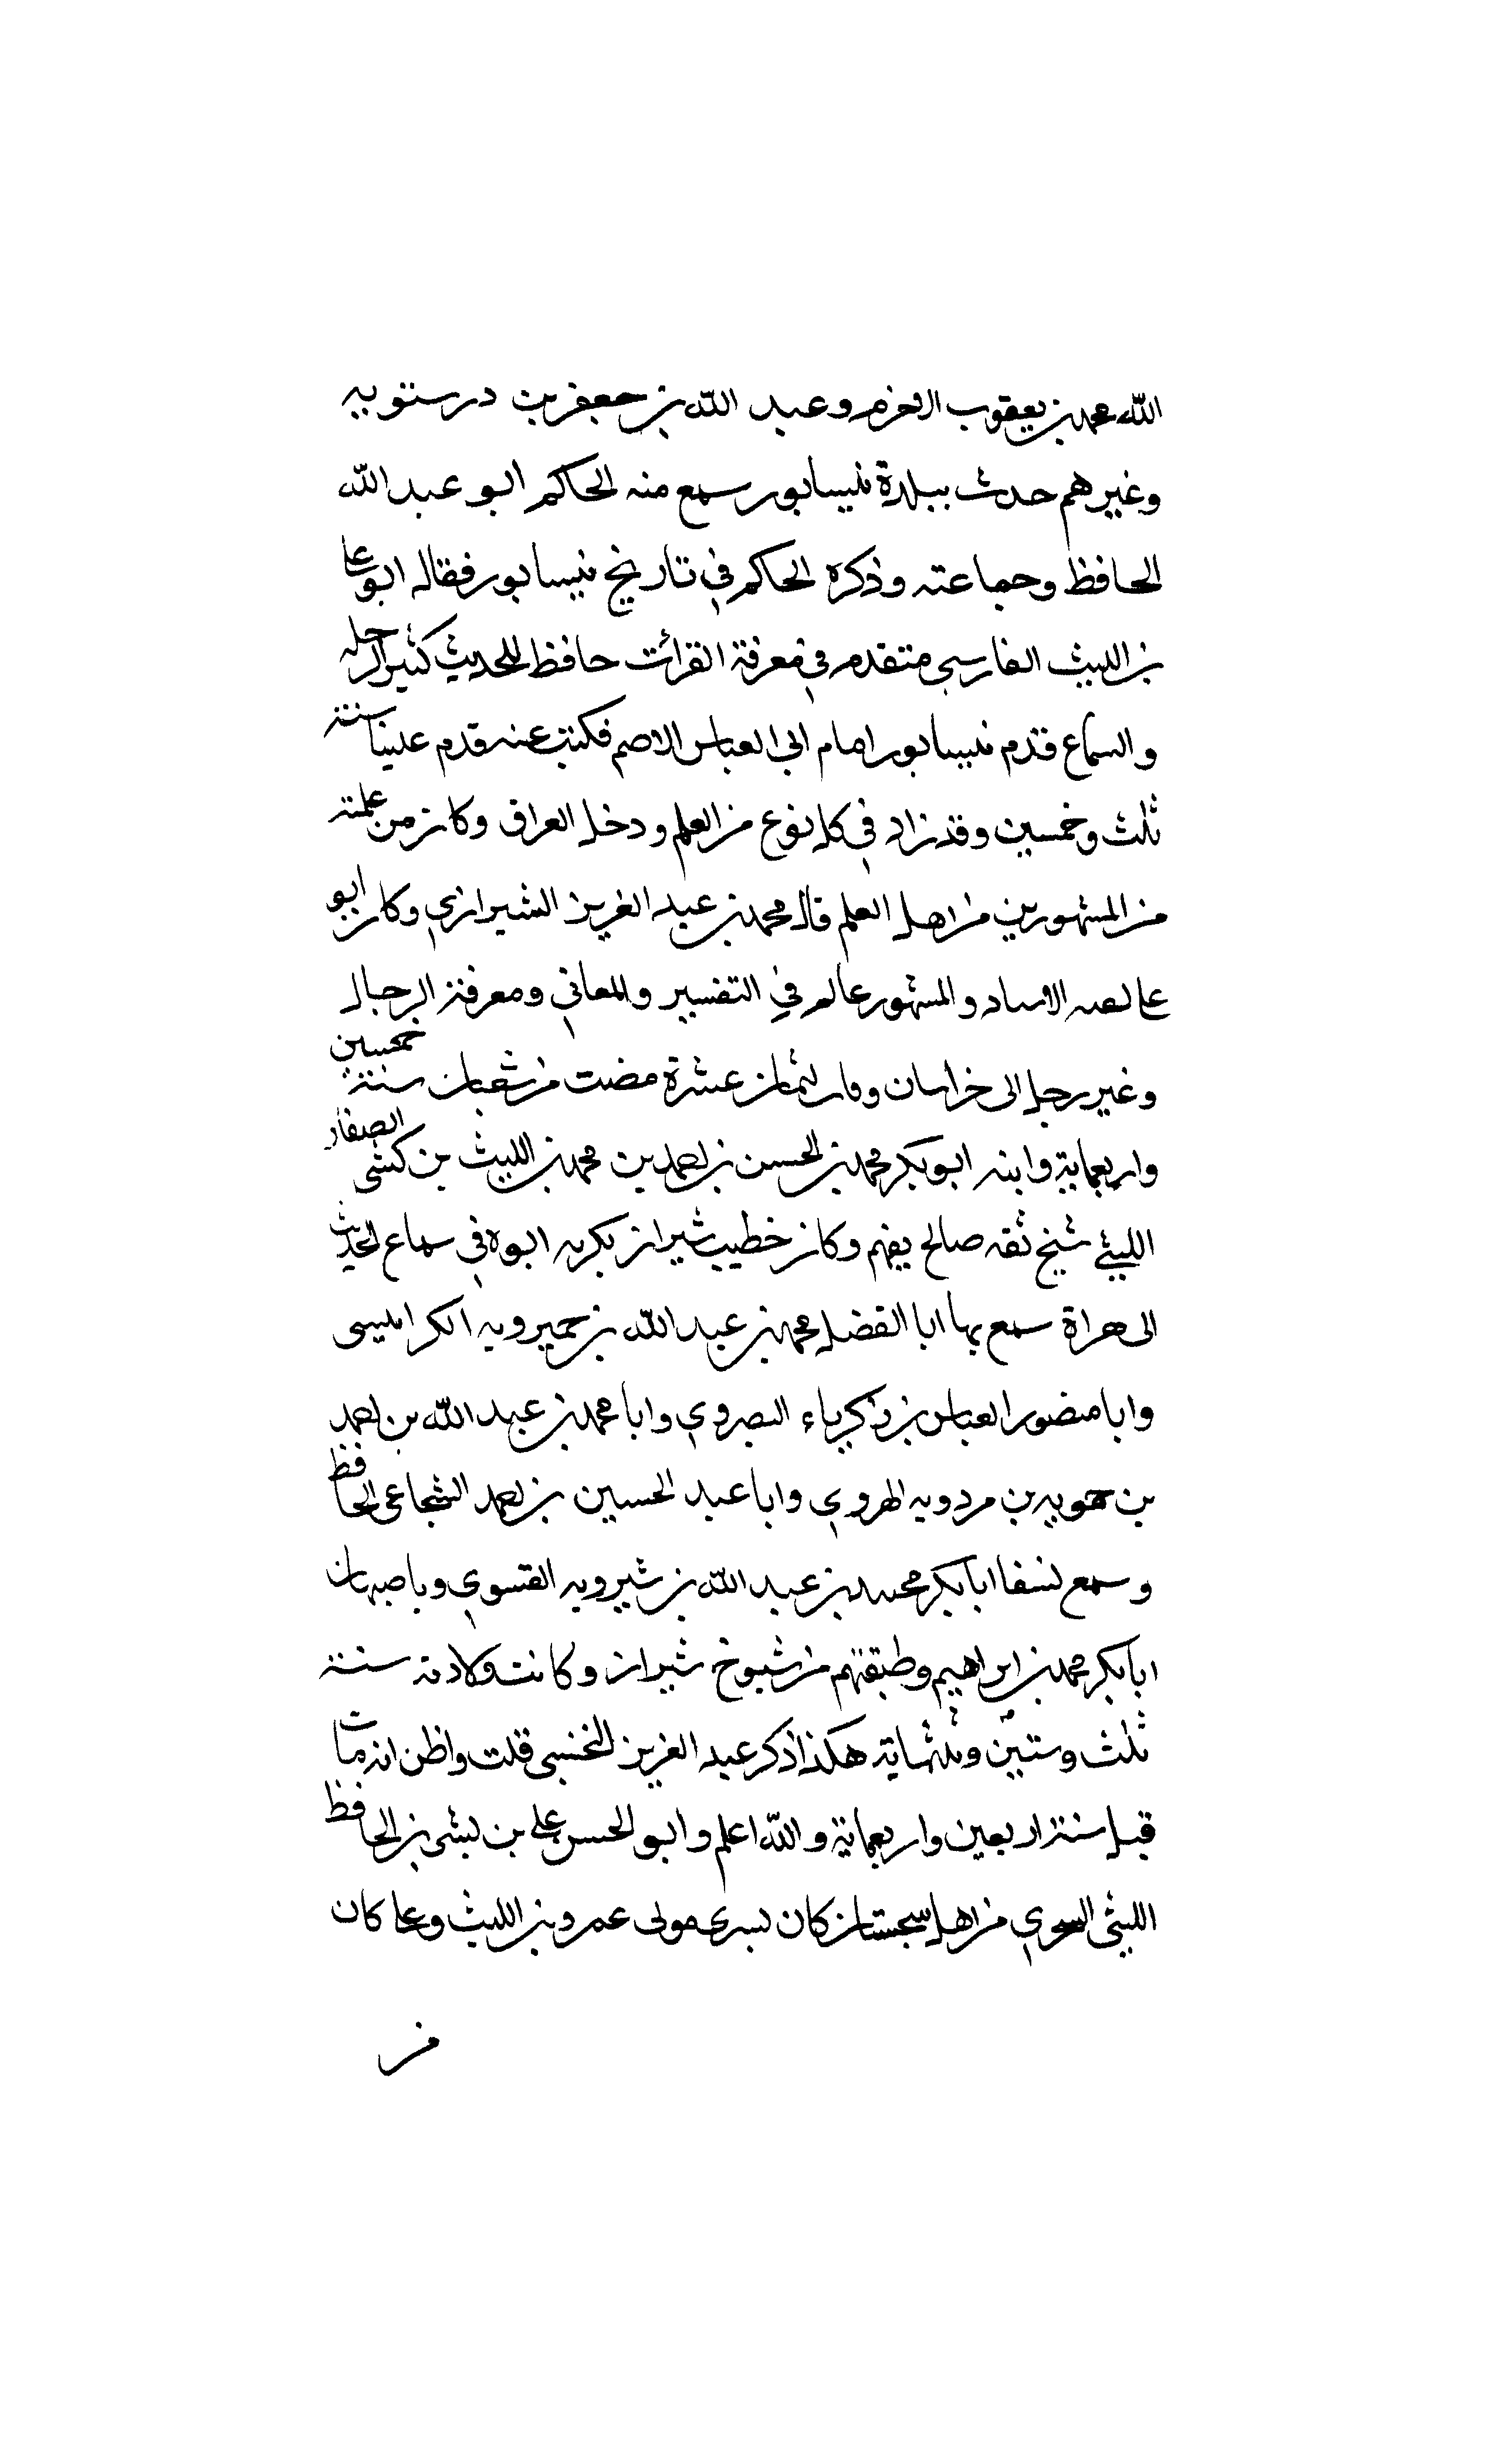 الله محمد بن يعقوب الاخرم وعبد الله بن جعفر بن درستويه
وغيرهم حدث ببلدة نيسابور سمع منه الحاكم ابو عبد الله
الحافظ وجماعته وذكره الحاكم في تاريخ نيسابور فقال ابو علي
بن الليث الفارسي متقدم في معرفة القرائت حافظ للحديث كثير الرحلة
والسماع قدم نيسابور امام ابي العباس الاصم فكتب عنه قدم علينا سنة
ثلث وخمسين وقد زاد في كل نوع من العلم ودخل العراق وكان من
من المشهورين من اهل العلم قال محمد بن عبد العزيز الشيرازي وكان ابو
والمشهور عالم في التفسير والمعاني ومعرفة الرجال
وغير رجل الى خراسان ومات لثمان عشرة مضت من شعبان سنة خمسين
واربعماية وابنه ابو بكر محمد بن الحسن بن احمد بن محمد بن الليث بن كشي الصفار
الليثي شيخ ثقه صالح يفهم وكان خطيب شيراز بكر به ابوه في سماع الحديث
الى هراة سمع بها ابا الفضل محمد بن عبد الله بن خميرويه الكرابيسي
وابا منصور العباس بن زكرياء النصروي وابا محمد بن عبد الله بن احمد
بن حمويه بن مردويه الهروي وابا عبد الحسين بن احمد الشجاعي الحافظ
وسمع لنسفا ابا بكر محمد بن عبد الله بن شيرويه الفسوي وباصبهان
ابا بكر محمد بن ابراهيم وطبقتهم من شيوخ شيراز وكانت ولادته سنة
ثلث وستين وثلثماية هكذا ذكر عبد العزيز النخشبي قلت واظن انه مات
قبل سنة اربعين واربعماية والله اعلم وابو الحسن علي بن بشي بن الحافظ
الليثي السجزي من اهل سجستان كان بسرى مولى عمرو بن الليث وعلي كان
من